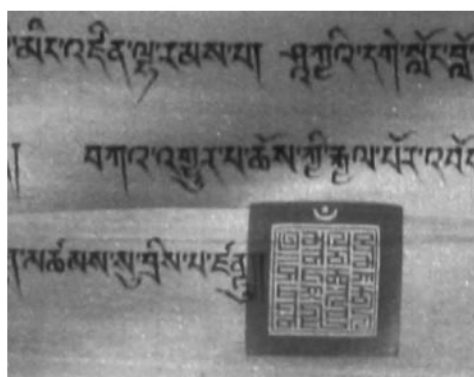 མིང་འཛིན་ལྷ་རམས་པ། ཤཱཀྱའི་དགེ་སློང་བློ
། བཀའ་འགྱུར་པ་ཆོས་ཀྱི་རྒྱལ་པོར་འབོད
མཚམས་སུ་བྲིས་པ་ཛེནྟུ།